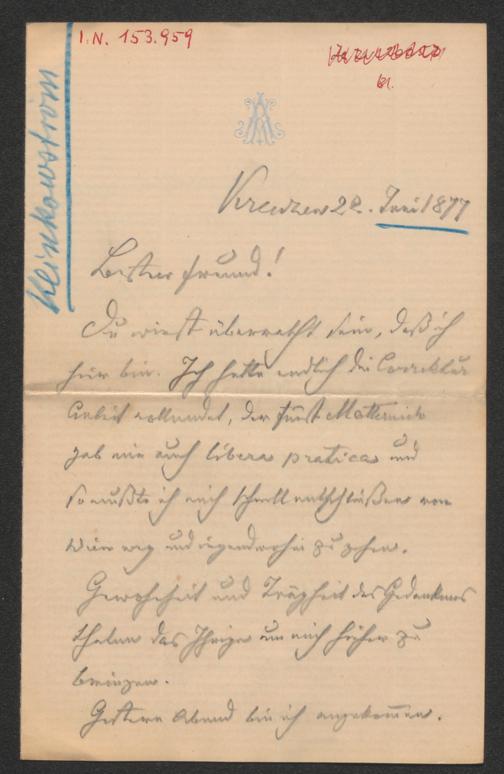 I.N. 153.959
Klinkowström
Kreuzen 22. Juni 1877
Bester Freund!
Du wirst überrascht sein, daß ich
hier bin. Ich hatte endlich die Correktur
Arbeit vollendet, der Fürst Metternich
gab mir auch libera pratica und
so mußte ich mich schnell entschließen von
Wien weg und irgendwohin zu gehen.
Gewohnheit und Trägheit des Gedankens
thaten das Ihrige um mich hieher zu
bringen.
Gestern Abend bin ich angekommen.